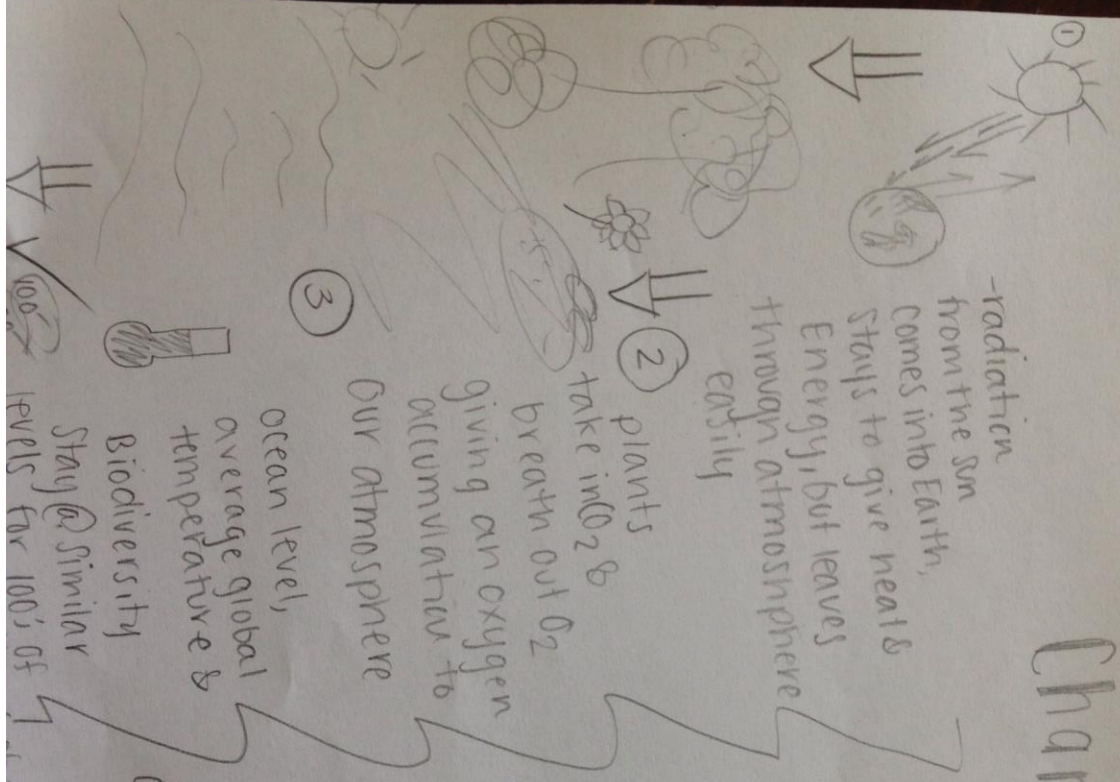 Cha
①
-radiation
from the sun
comes into Earth,
stays to give heat &
Energy, but leaves
through atmoshphere
easily
②
plants
take in CO2 &
breath out O2
giving an oxygen
accumulation to
Our atmosphere
③
ocean level,
average global
temperature &
Biodiversity
Stay @ Similar
100
levels for 100's of